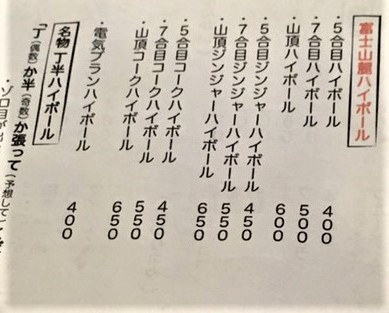 富士山麓ハイボール
・5合目ハイボール 400
・7合目ハイボール 500
・山頂ハイボール 600
・5合目ジンジャーハイボール 450
・7合目ジンジャーハイボール 550
・山頂ジンジャーハイボール 650
・5合目コークハイボール 450
・7合目コークハイボール 550
・山頂コークハイボール 650
・電気ブランハイボール 400
名物 丁半ハイボール
「丁(偶数)か半(奇数)か張って(予想して)
・ゾロ目が出